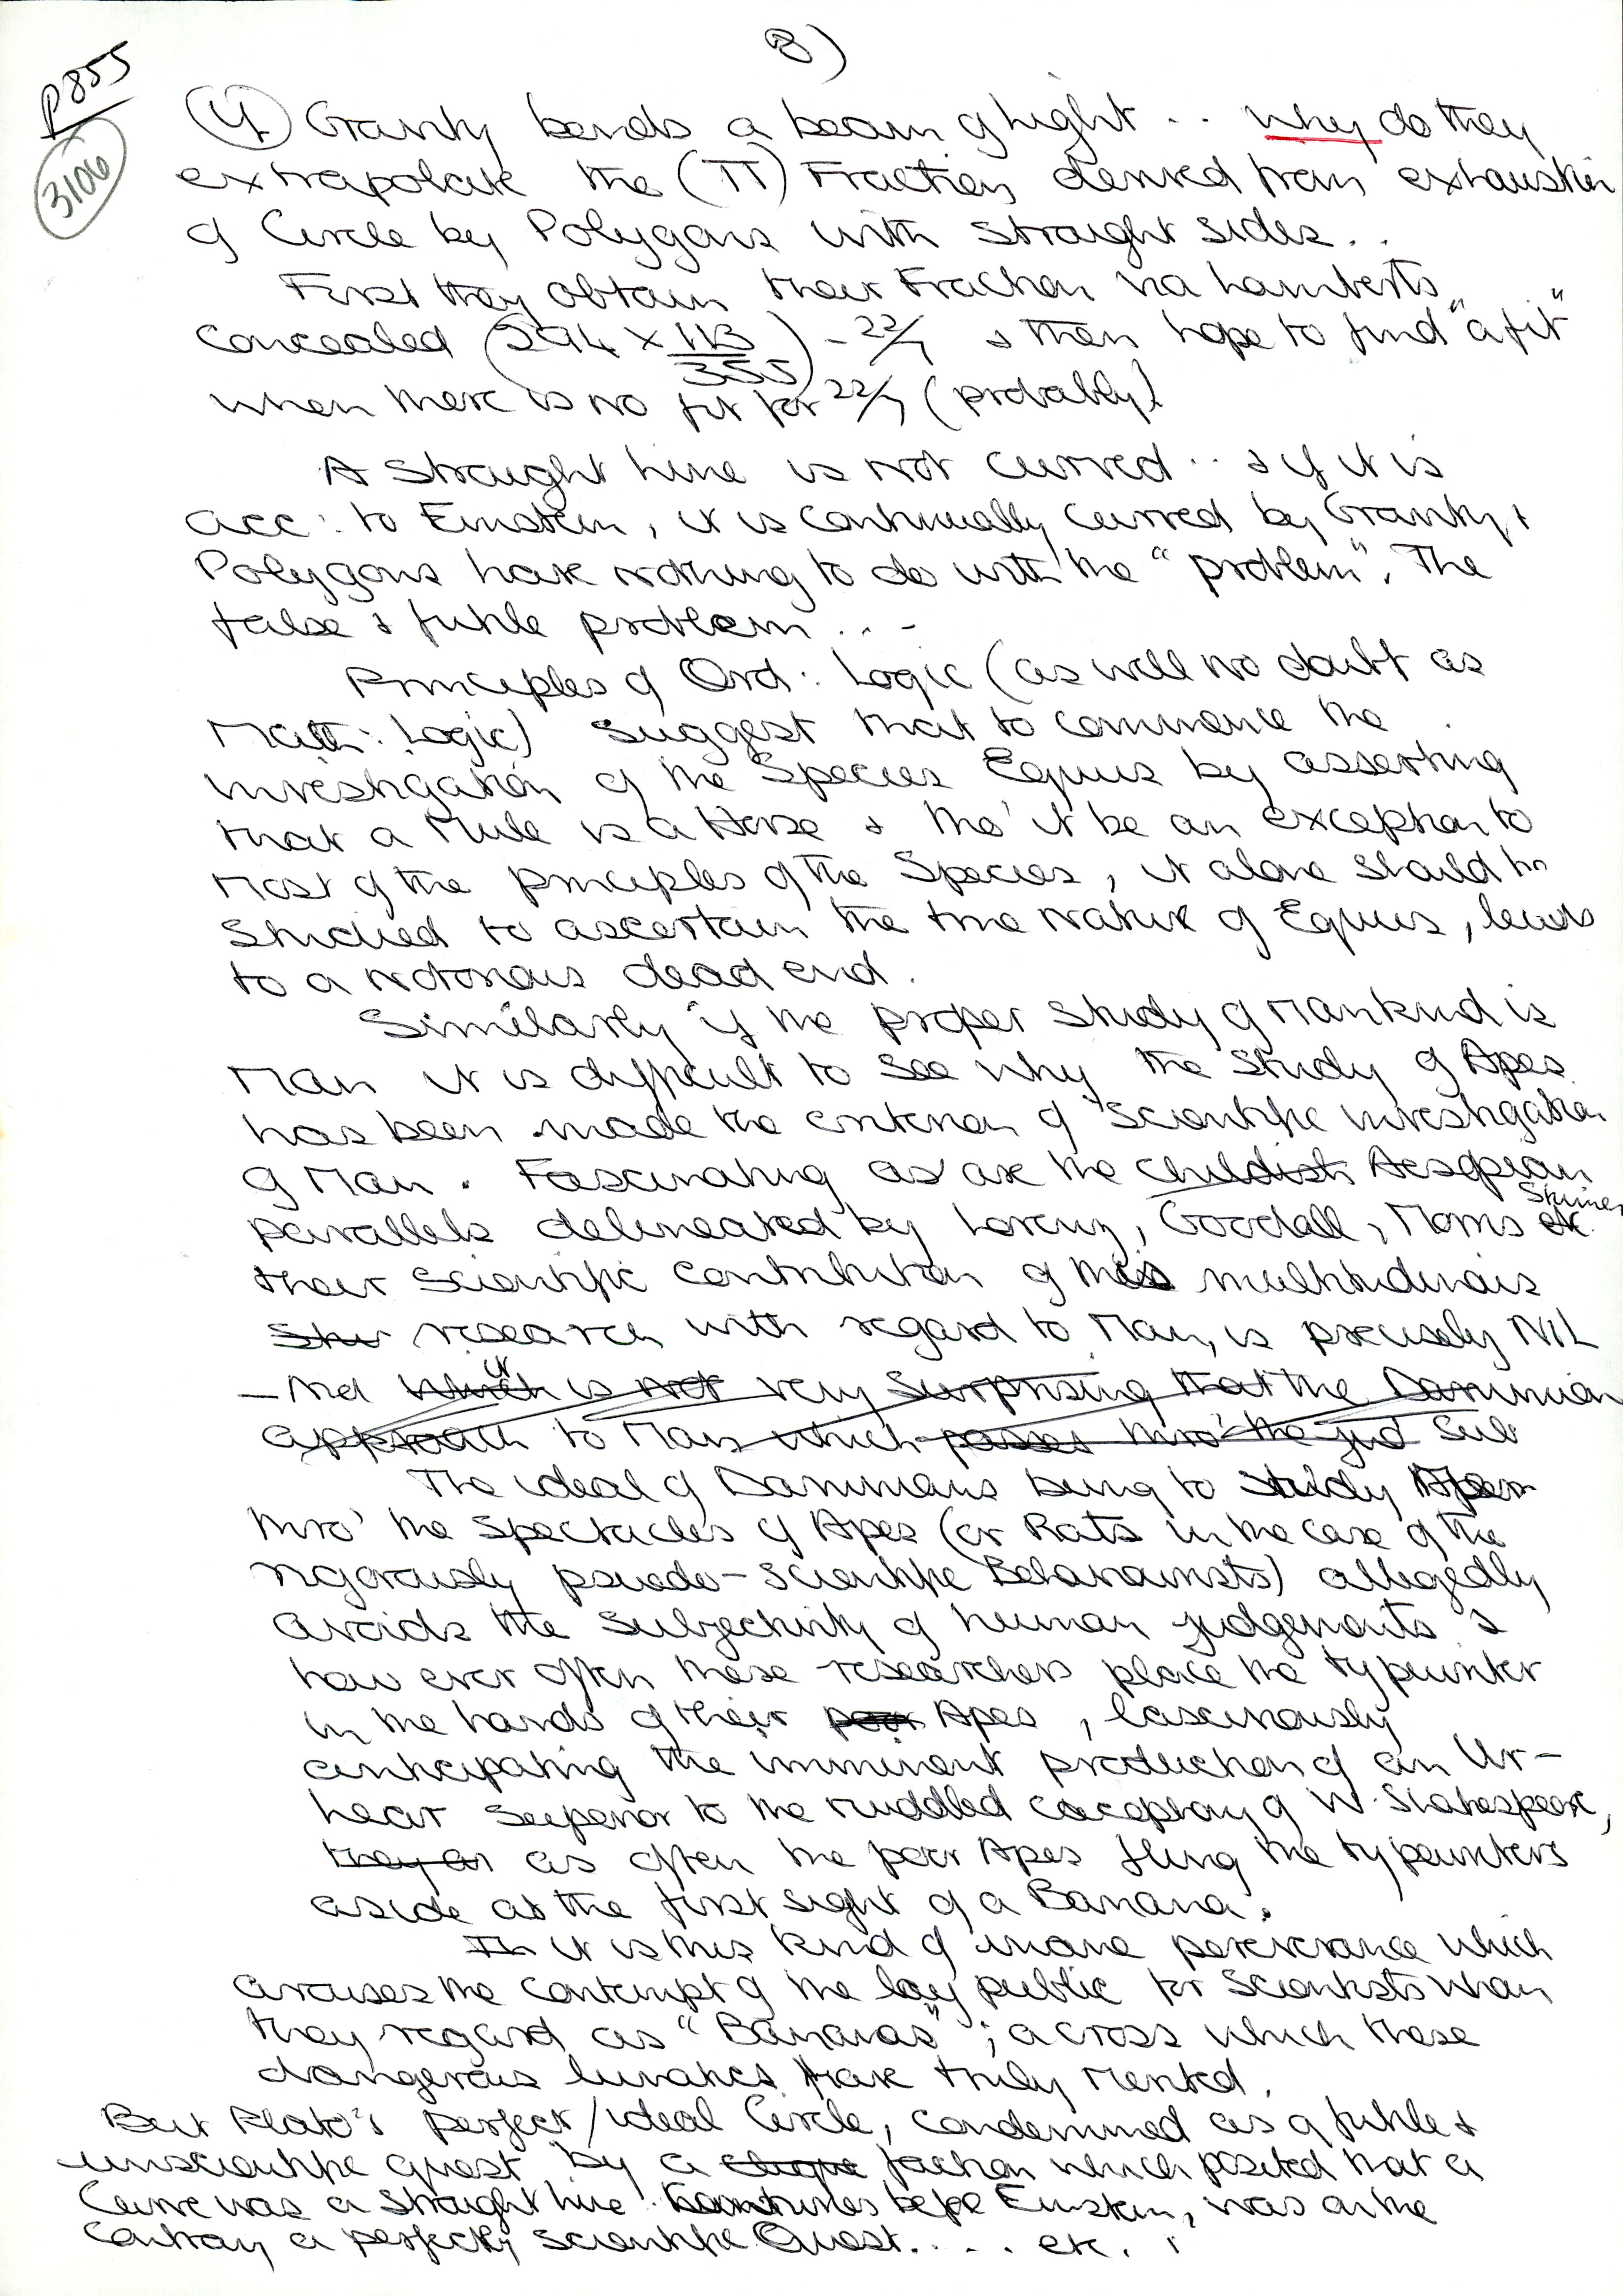 8)
P855
3106
(4) Gravity bends a beam of light .. why do they
extrapolate the (π) Fraction derived from exhaustion
of Circle by Polygons with straight sides..
First they obtain their Fraction via Lamberts
concealed (294 × 113/355) - 22/7 & then hope to find "a fit"
when there is no fit for 22/7 (probably)
A straight line is not curved .. & if it is
acc: to Einstein, it is continually curved by Gravity,
Polygons have nothing to do with the "problem". The
false & futile problem ...
Principles of Ord: Logic (as well no doubt as
Math: Logic) suggest that to commence the
investigation of the Species Equus by asserting
that a Mule is a Horse & tho' it be an exception to
most of the principles of the Species, it alone should be
studied to ascertain the true nature of Equus, leads
to a notorious dead end.
Similarly if the proper study of Mankind is
Man it is difficult to see why the study of Apes
has been made the criterion of scientific investigation
of Man. Fascinating as are the childish Aesopean
parallels delineated by Lorenz, Goodall, Morris etc. Skinner
their scientific contribution of this multitudinous
research with regard to Man, is precisely NIL
- And which it is not very surprising that the Darwinian
approach to Man which passes thro' the Sub
The ideal of Darwinians being to study
thro' the spectacles of Apes (or Rats in the case of the
rigorously pseudo-scientific Behaviourists) allegedly
avoids the subjectivity of human judgements &
how ever often these researchers place the typewriter
in the hands of their poor Apes, lasciviously
anticipating the imminent production of an Ur-
hear superior to the muddled cacophony of W. Shakespeare,
they as often the poor Apes fling the typewriters
aside at the first sight of a Banana.
It is this kind of inane perseverance which
arouses the contempt of the lay public for Scientists whom
they regard as "Bananas"; across which these
dangerous lunatics have truly merited.
But Plato's perfect/ideal Circle, condemned as a futile &
unscientific quest by a clique faction which posited that a
Curve was a straight line before Einstein, was on the
contrary a perfectly scientific Quest..... etc.